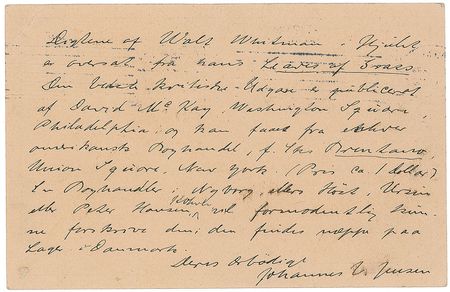 Digtene af Walt Whitman i Hjulet
er oversat fra hans Leaves of Grass.
Den bedste kritiske Udgave er publiceret
af David Mc Kay, Washington Square,
Philadelphia, og kan faaes fra enhver
amerikansk Boghandel, f. Eks Brentano
Union Square, New York. (Pris ca. 1 dollar)
En Boghandler i Nyborg eller Høst, Ursin
eller Peter Hansen, Kbhvn vil formodentlig kun-
ne forskrive den; den findes næppe paa
Lager i Danmark.
Deres ærbødige
Johannes V. Jensen